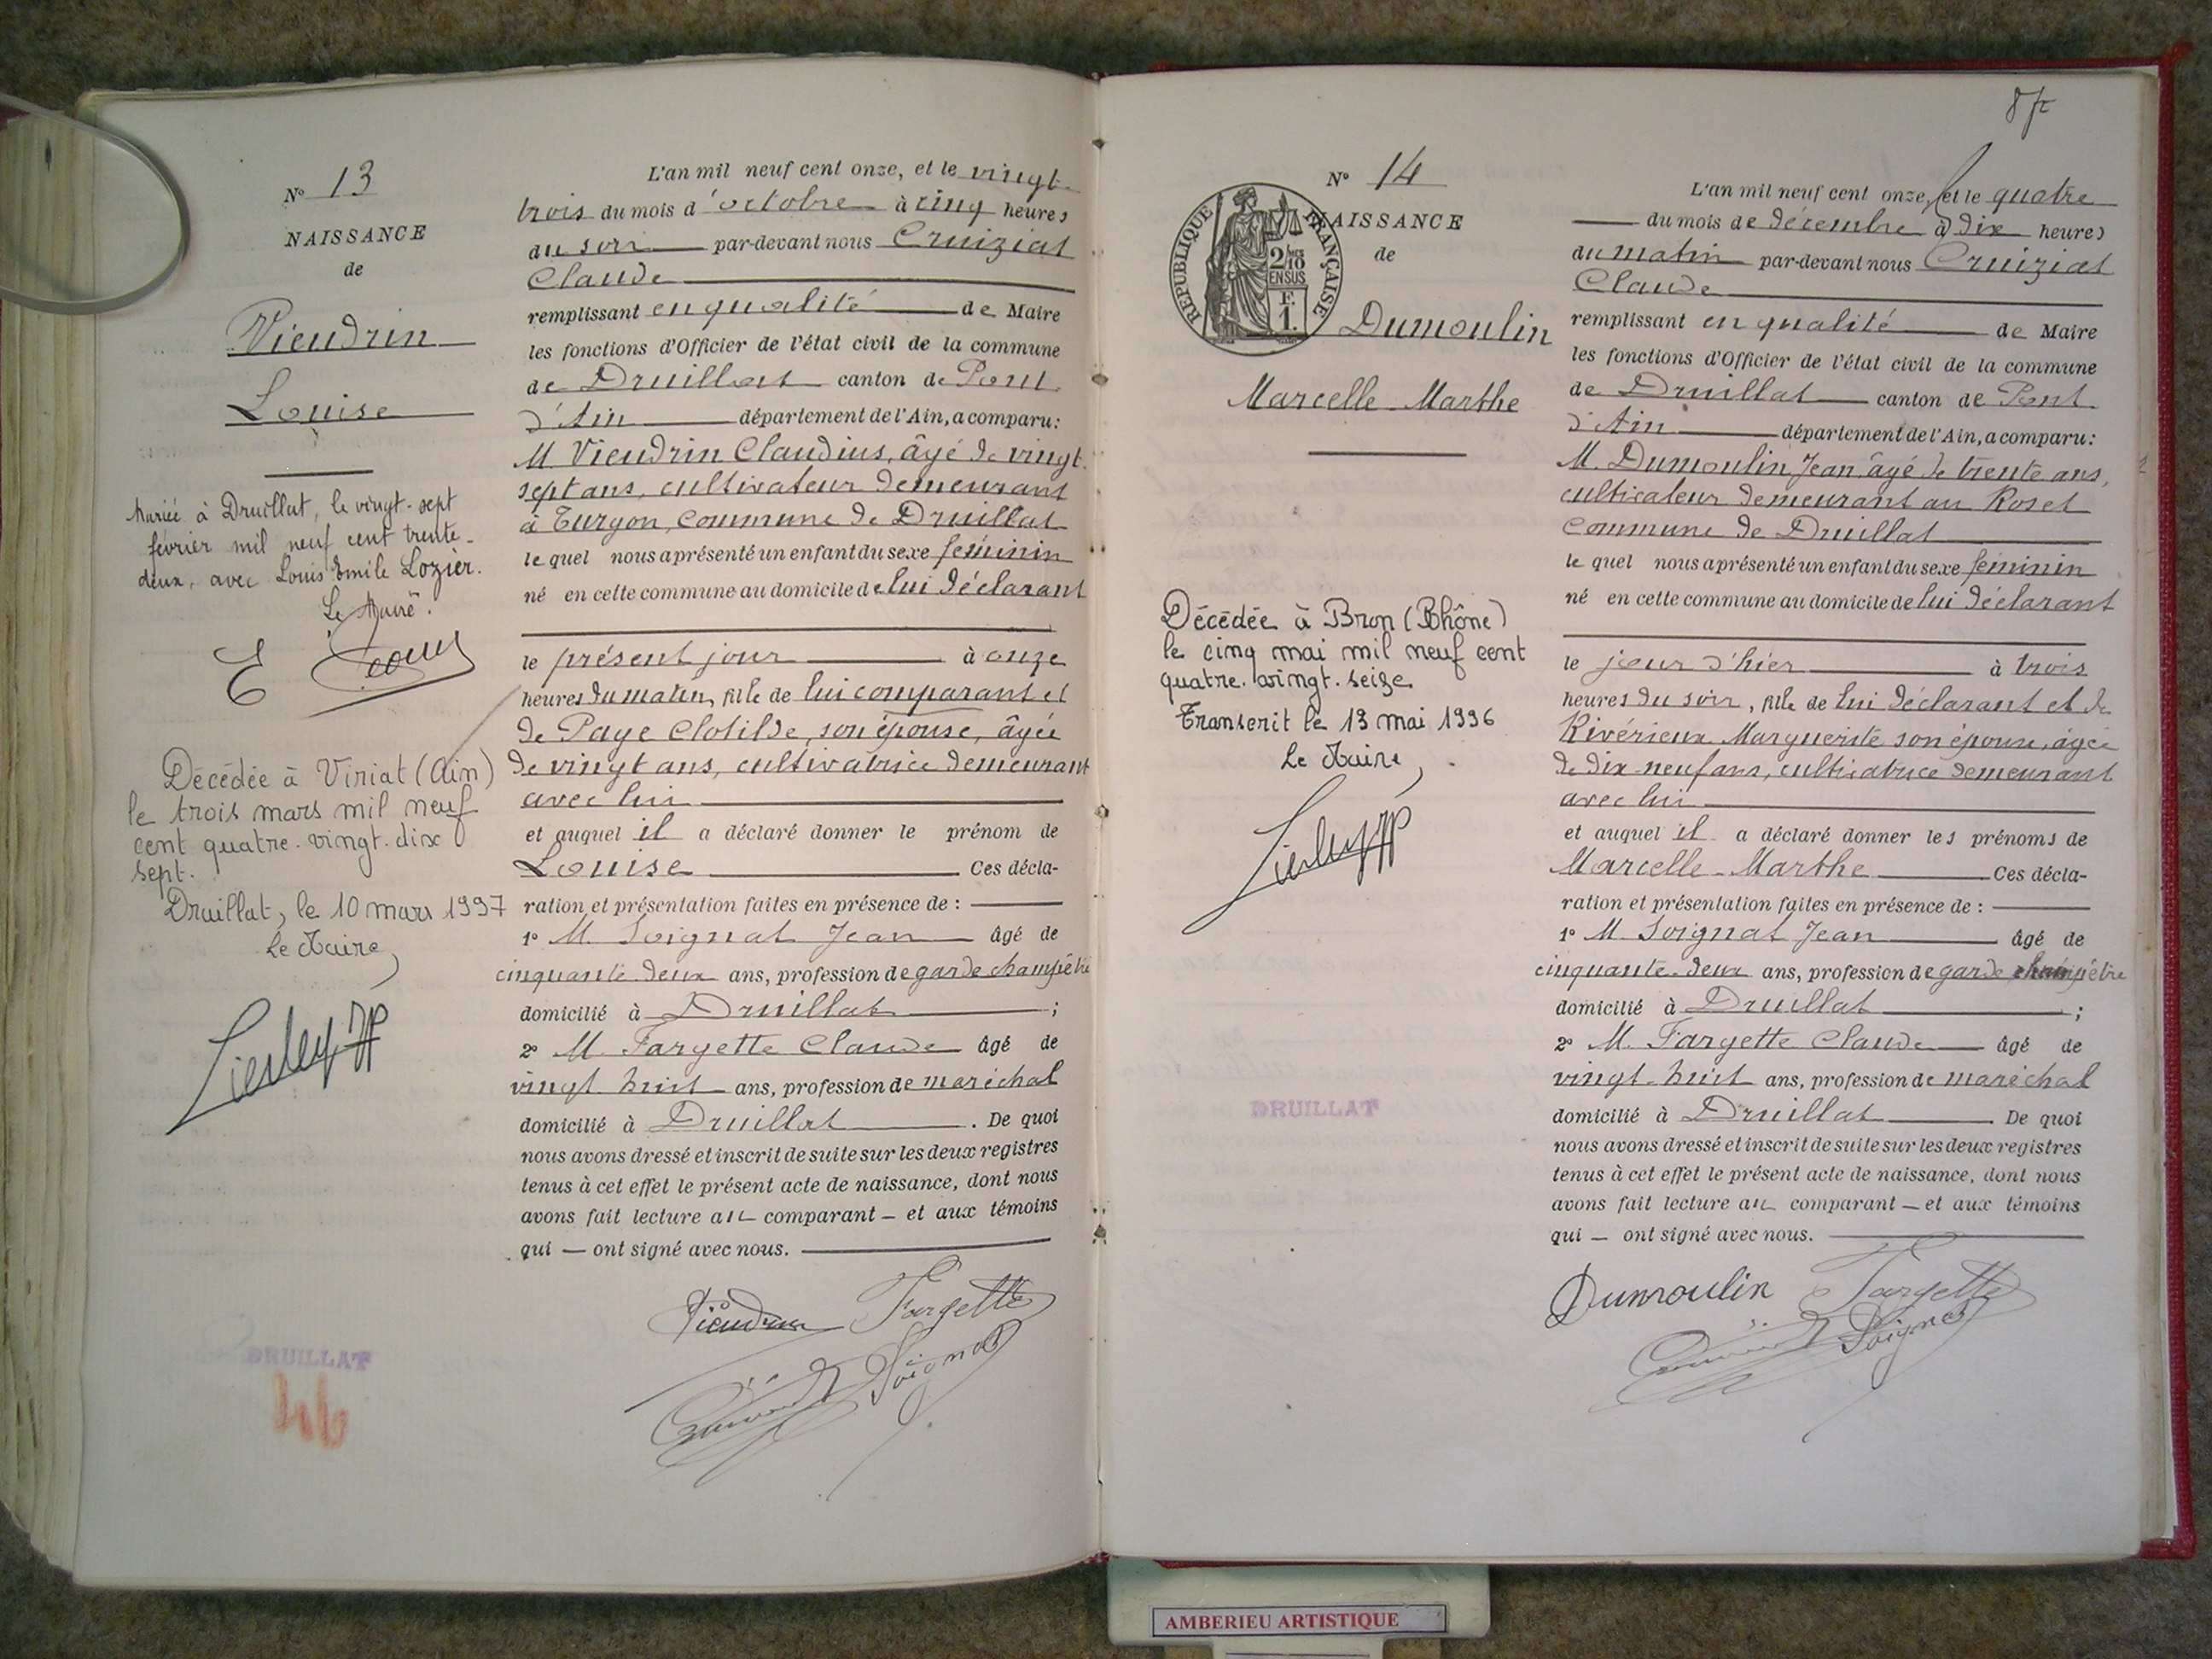 N° 13
NAISSANCE
de
Vieudrin
Louise
Mariée à Druillat, le vingt-sept
février mil neuf cent trente-
deux, avec Louis Emile Lozier.
Le Maire.
Décédée à Viriat (Ain)
le trois mars mil neuf
cent quatre-vingt-dix
sept.
Druillat, le 10 mars 1997
Le Maire,
DRUILLAT
46
L'an mil neuf cent onze, et le vingt-
trois du mois d'octobre à cinq heures
du soir par-devant nous Cruiziat
Claude
remplissant en qualité de Maire
les fonctions d'Officier de l'état civil de la commune
de Druillat canton de Pont
d'Ain département de l'Ain, a comparu:
M Vieudrin Claudius, âgé de vingt
sept ans, cultivateur demeurant
à Turgon, commune de Druillat
lequel nous a présenté un enfant du sexe féminin
né en cette commune au domicile de lui déclarant
le présent jour à onze
heures du matin, fille de lui comparant et
de Paye Clotilde, son épouse, âgée
de vingt ans, cultivatrice demeurant
avec lui
et auquel il a déclaré donner le prénom de
Louise Ces décla-
ration et présentation faites en présence de :
1° M. Soignat Jean âgé de
cinquante deux ans, profession de garde champêtre
domicilié à Druillat ;
2° M. Fargette Claude âgé de
vingt huit ans, profession de maréchal
domicilié à Druillat . De quoi
nous avons dressé et inscrit de suite sur les deux registres
tenus à cet effet le présent acte de naissance, dont nous
avons fait lecture au comparant et aux témoins
qui ont signé avec nous.
Vieudrin Fargette
Cruiziat Soignat
8
N° 14
RÉPUBLIQUE FRANÇAISE
2/10
EN SUS
F.
1.
NAISSANCE
de
Dumoulin
Marcelle-Marthe
Décédée à Bron (Rhône)
le cinq mai mil neuf cent
quatre-vingt-seize
Transcrit le 13 mai 1996
Le Maire,
DRUILLAT
L'an mil neuf cent onze, et le quatre
du mois de décembre à dix heures
du matin par-devant nous Cruiziat
Claude
remplissant en qualité de Maire
les fonctions d'Officier de l'état civil de la commune
de Druillat canton de Pont
d'Ain département de l'Ain, a comparu:
M. Dumoulin Jean, âgé de trente ans,
cultivateur demeurant au Roset
commune de Druillat
lequel nous a présenté un enfant du sexe féminin
né en cette commune au domicile de lui déclarant
le jour d'hier à trois
heures du soir, fille de lui déclarant et de
Rivérieux Marguerite son épouse, âgée
de dix-neuf ans, cultivatrice demeurant
avec lui
et auquel il a déclaré donner les prénoms de
Marcelle-Marthe Ces décla-
ration et présentation faites en présence de :
1° M. Soignat Jean âgé de
cinquante-deux ans, profession de garde champêtre
domicilié à Druillat ;
2° M. Fargette Claude âgé de
vingt-huit ans, profession de maréchal
domicilié à Druillat De quoi
nous avons dressé et inscrit de suite sur les deux registres
tenus à cet effet le présent acte de naissance, dont nous
avons fait lecture au comparant et aux témoins
qui ont signé avec nous.
Dumoulin Fargette
Cruiziat Soignat
AMBERIEU ARTISTIQUE